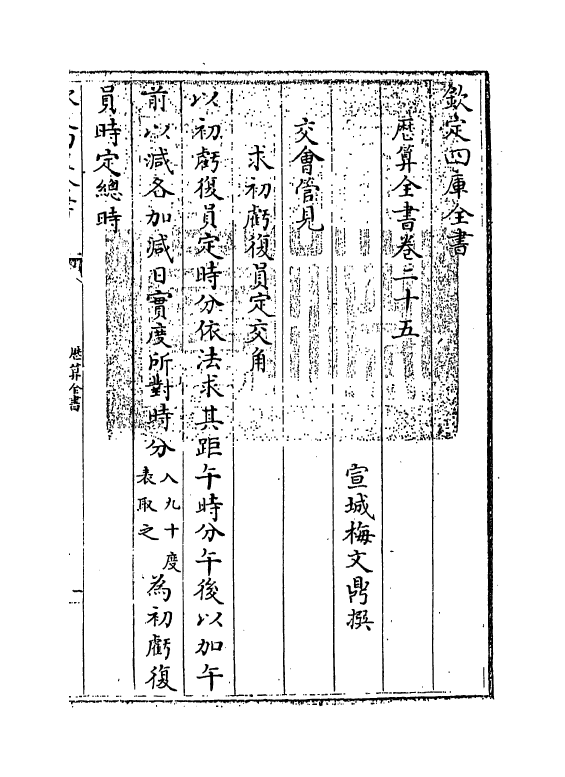 欽定四庫全書
厯算全書卷三十五
宣城梅文鼎撰
交會管見
求初虧復員定交角
以初虧復員定時分依法求其距午時分午後以加午
前以減各加減日實度所對時分入九十度表取之為初虧復
員時定總時
厯算全書
一